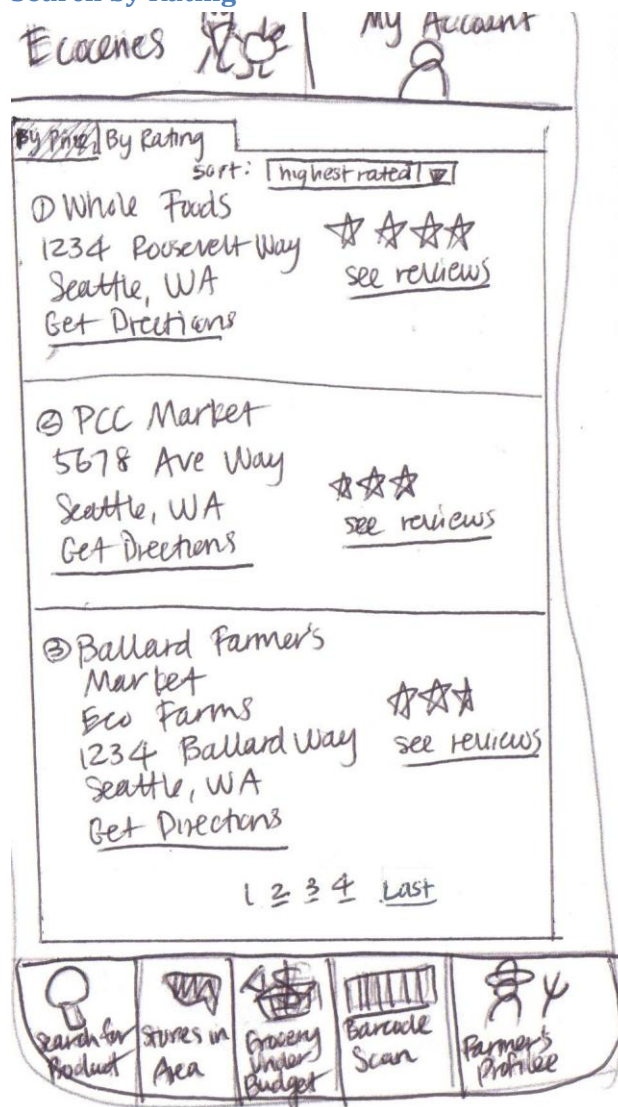 Search by Rating
Ecocenes
My Account
By Price By Rating
sort: highest rated
① Whole Foods
1234 Roosevelt Way
Seattle, WA
see reviews
Get Directions
② PCC Market
5678 Ave Way
Seattle, WA
see reviews
Get Directions
③ Ballard Farmer's
Market
Eco Farms
1234 Ballard Way
see reviews
Seattle, WA
Get Directions
1 2 3 4 Last
Search for
Product
Stores in
Area
Grocery
Under
Budget
Barcode
Scan
Farmer's
Profilee